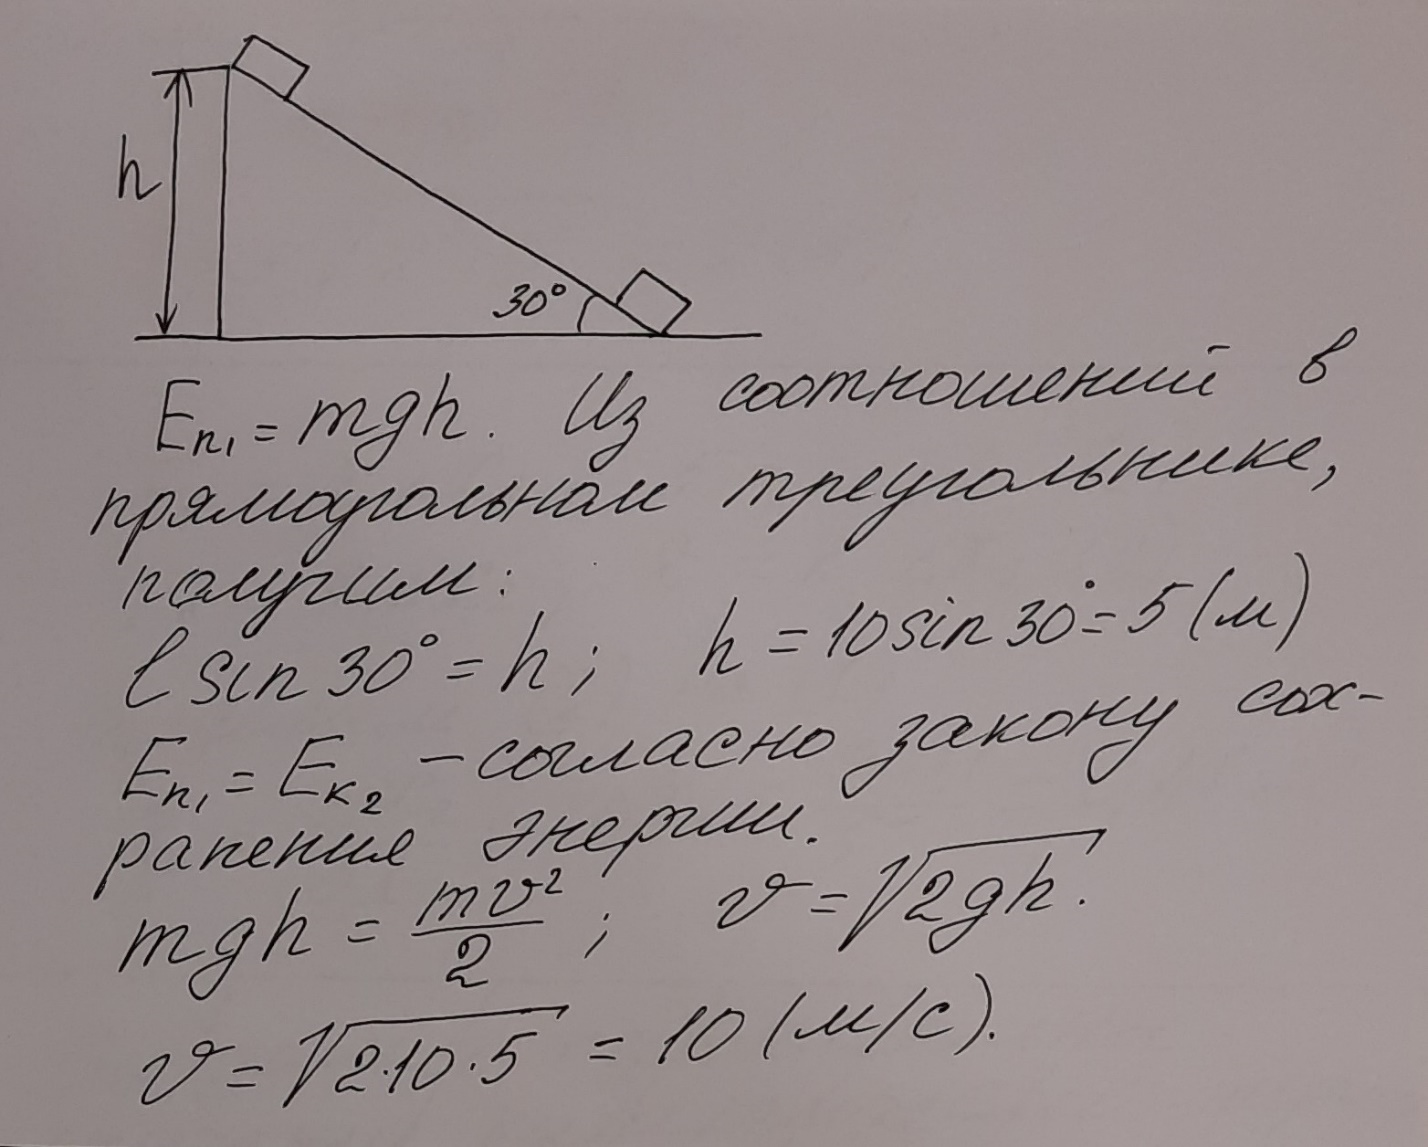 h
30°
Eп₁ = mgh. Из соотношений в
прямоугольном треугольнике,
получим:
l sin 30° = h; h = 10 sin 30° = 5 (м)
Eп₁ = Eк₂ – согласно закону сох-
ранения энергии.
mgh = mv²/2; v = √2gh.
v = √2·10·5 = 10 (м/с).